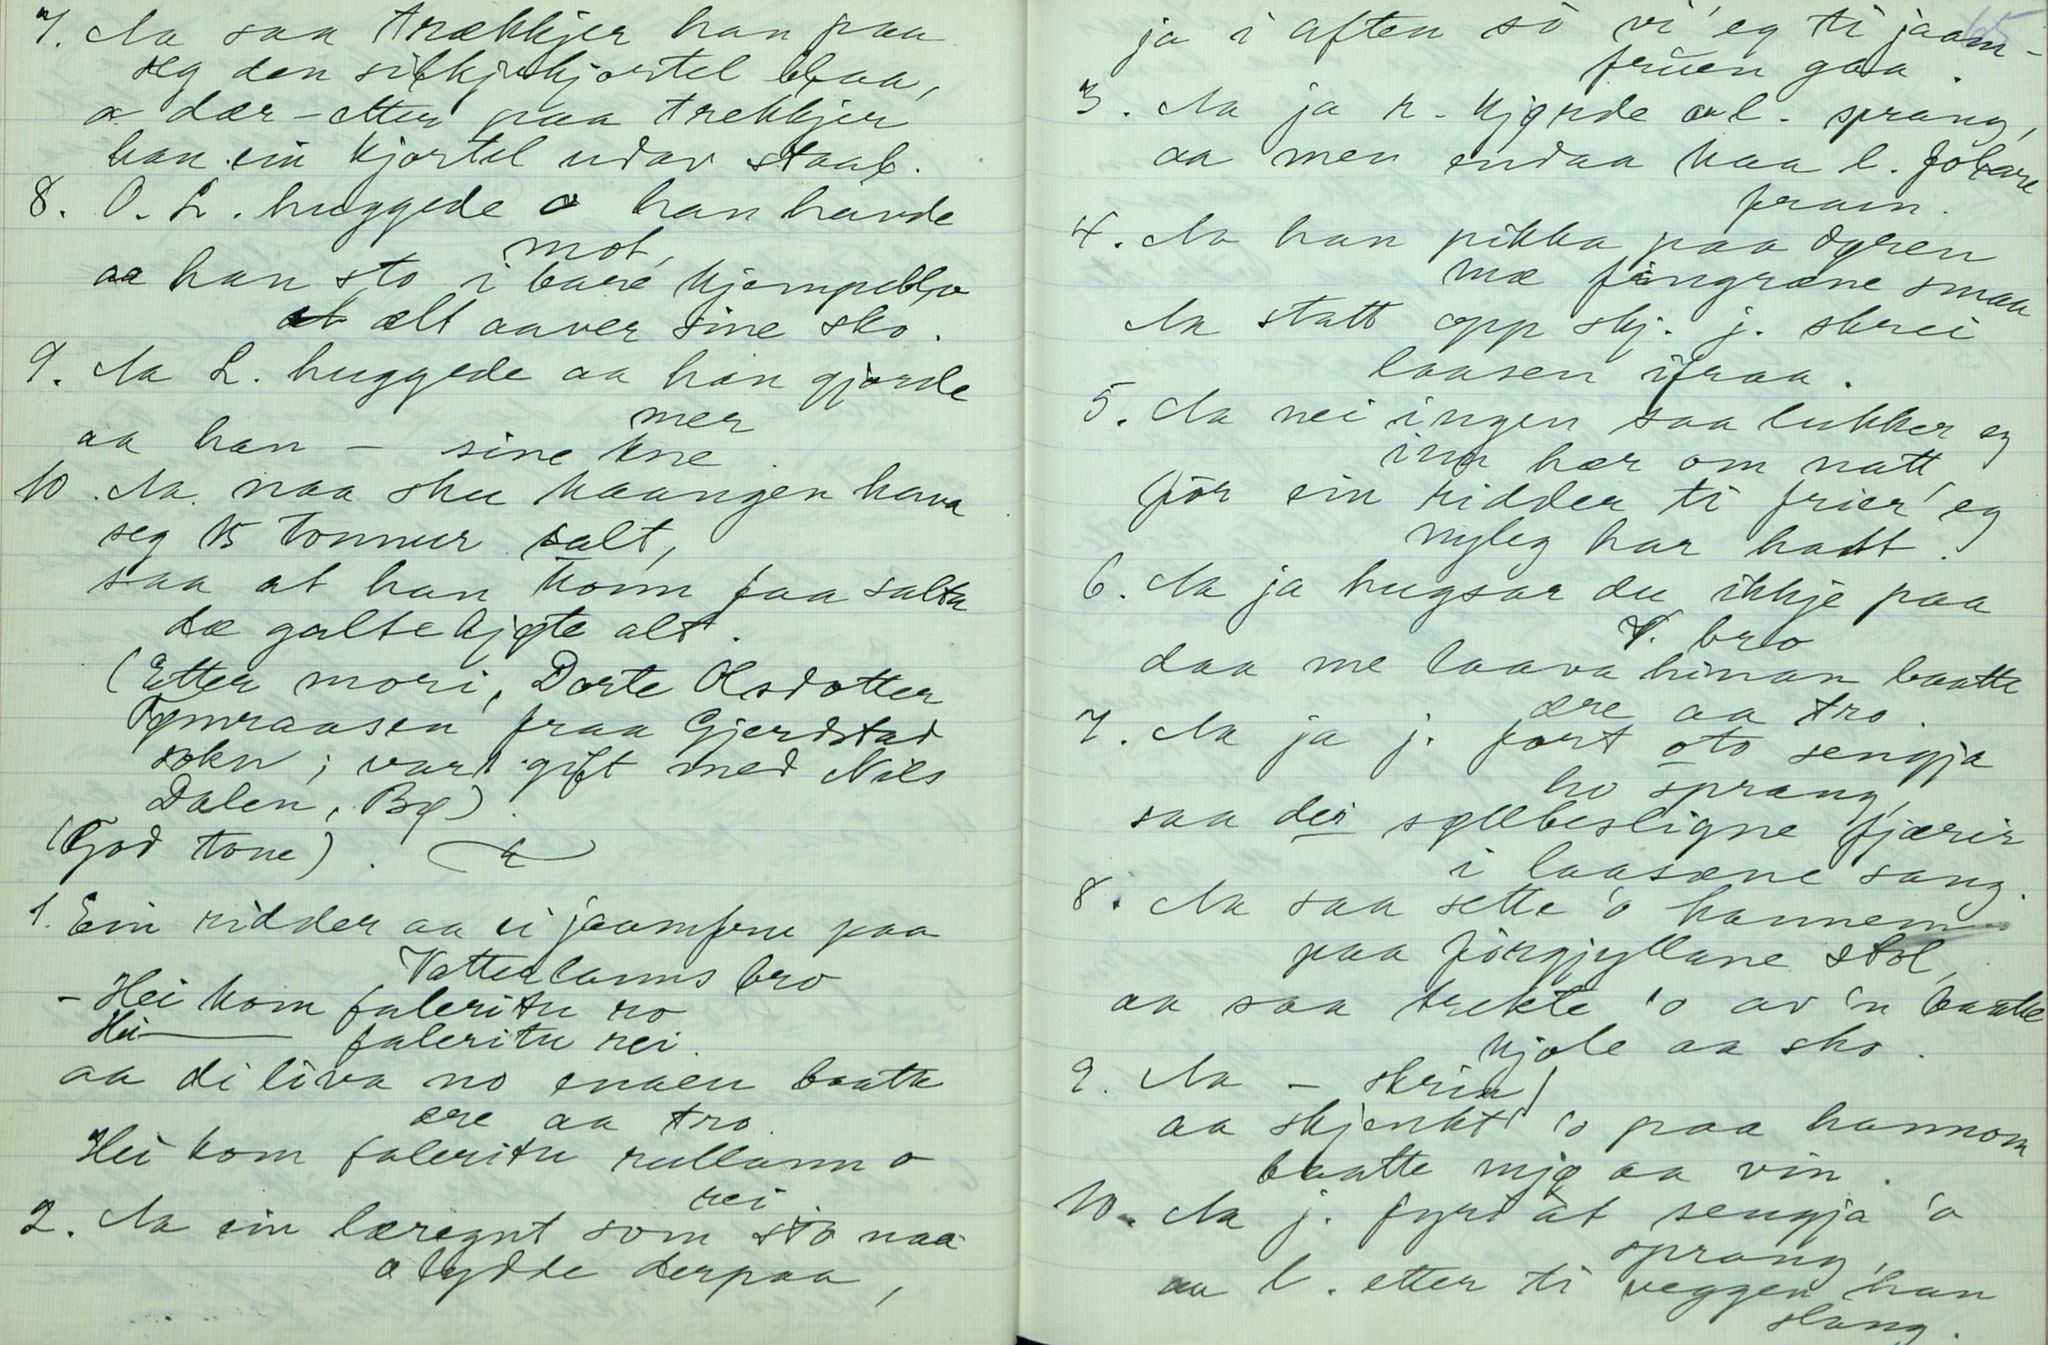 7. Aa saa trækkjer han paa
seg den silkjekjortel blaa,
a dær-etter paa trekkjer
han ein kjortel udav staal.
8. O. L. huggede o han havde
mot,
aa han sto i bare kjempeblo
alt aaver sine sko.
9. Aa L. huggede aa han gjorde
mer
aa han – sine kne
10. Aa naa sku kaangen hava
seg 15 tonnur salt,
saa at han konn faa salta
dæ galtekjøte alt.
(Etter mori, Dorte Olsdotter
Tømraasen fraa Gjerdstad
sokn; vart gift med Nils
Dalen, Bø).
(God tone).
1. Ein ridder aa ei jaamfru paa
Vatterlanns bro
– Hei kom faleritu ro
Hei — faleritu rei.
aa di liva no enaen baatte
ære aa tro.
Hei kom faleritu rullann o
rei
2. Aa ein læregut som sto naa
o lydde derpaa,
65
ja i aften so vi' eg ti jaam-
fruen gaa.
3. Aa ja r. kjørde a l. sprang,
aa men endaa kaa l. fobare
fram.
4. Aa han pikka paa dyren
mæ fingrane smaa
Aa statt opp skj. j. skrei
laasen ifraa.
5. Aa nei ingen saa lukker eg
inn hær om natt
for ein ridder ti frier eg
nyleg har hatt.
6. Aa ja hugsar du ikkje paa
V. bro
daa me laava hinan baatte
ære aa tro.
7. Aa ja j. fort oto sengja
ho sprang,
saa dei søllbesligne fjærir
i laasæne sang.
8. Aa saa sette 'o hannem
paa forgjyllane stol,
aa saa trekte 'o av 'n baatte
kjole aa sko.
9. Aa – skrin
aa skjenkt 'o paa hannom
baatte mjø aa vin.
10. Aa j. fyri at sengja 'o
sprang,
aa l. etter ti veggen han
slang.